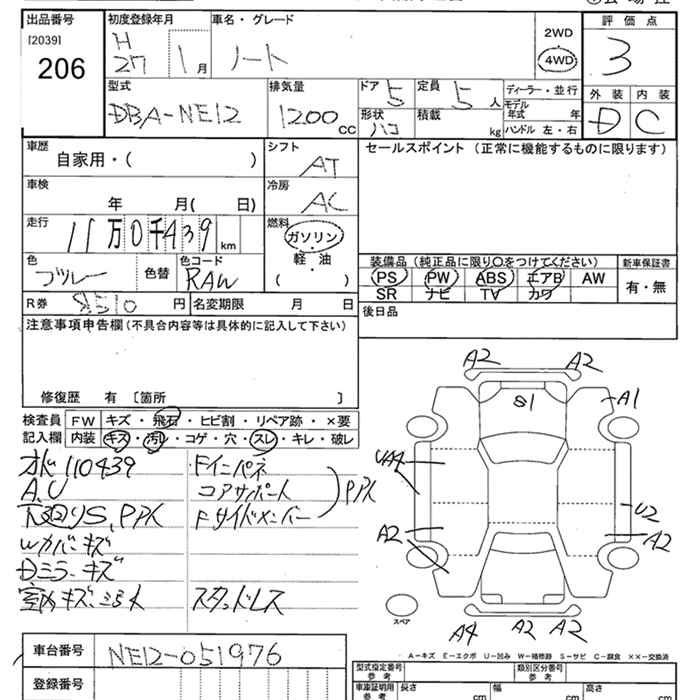 出品番号 初度登録年月 車名・グレード 2WD 評価点
[2039] H
206 27 1月 ノート 4WD 3
型式 排気量 ドア 定員 ディーラー・並行 外装 内装
DBA-NE12 1200 CC 5 5 人 モデル年式 年 D C
形状 ハコ 積載 kg ハンドル 左・右
車歴 シフト セールスポイント (正常に機能するものに限ります)
自家用・( ) AT
車検 冷房
年 月( 日) AC
走行 燃料
11万0千439 km ガソリン
・
軽・油
( )
色 色替 色コード 装備品 (純正品に限り○をつけてください) 新車保証書
RAW PS PW ABS エアB AW 有・無
SR ナビ TV カワ
R券 8510 円 名変期限 月 日 後日品
注意事項申告欄(不具合内容等は具体的に記入して下さい)
修復歴 有 〔箇所 〕
検査員 FW キズ・飛石・ヒビ割・リペア跡・×要
記入欄 内装 キズ・汚レ・コゲ・穴・スレ・キレ・破レ
110439 Fインパネ
A.U コアサポート PPK
下回りS,PPK Fサイドメンバー
Wカバーキズ
Dミラーキズ
室内キズ、ヨゴレ スタッドレス
A2 A2
S1 A1
UA4
U2
A2 A2
スペア
A4 A2 A2
A-キズ E-エクボ U-凹み W-補修跡 S-サビ C-腐食 ××-交換済
車台番号 NE12-051976
登録番号
型式指定番号 参考 類別区分番号 参考
車庫証明用 参考 長さ cm 幅 cm 高さ cm